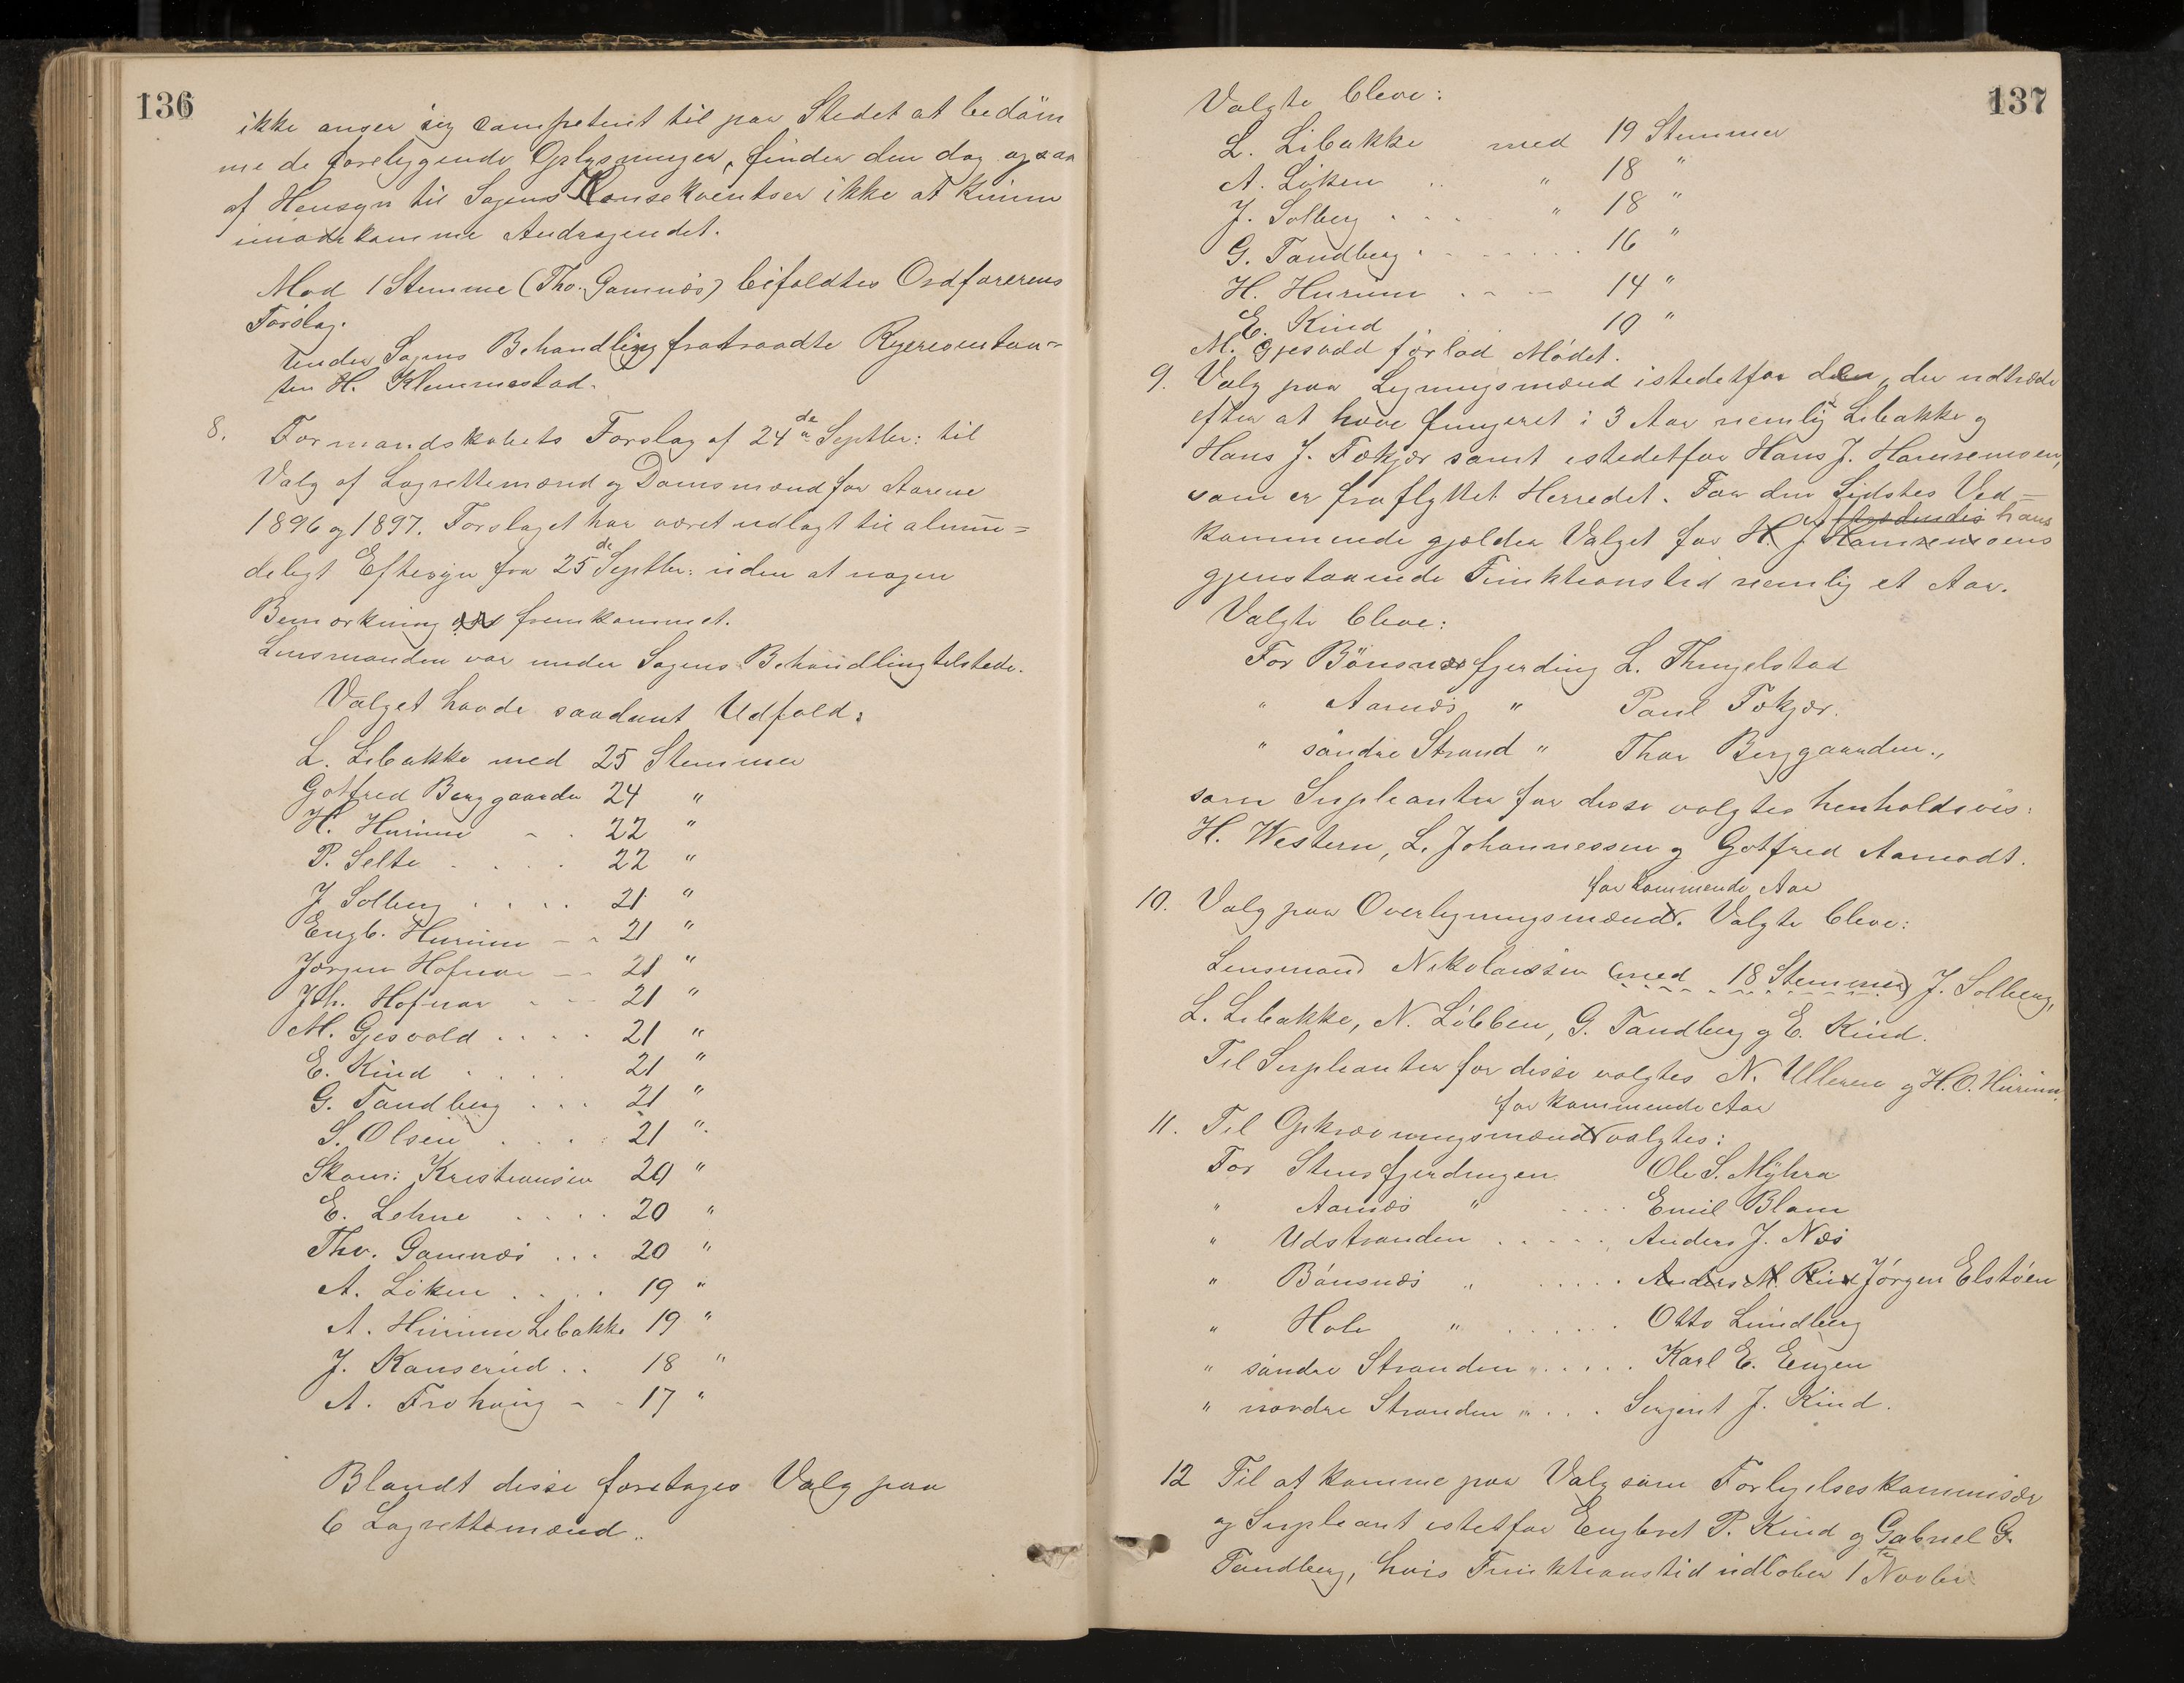 136
ikke anser sig competent til paa Stedet at bedöm
me de foreliggende Oplysninger, finder den dog ogsaa
af Hensyn til Sagens Konsekventser ikke at kunne
imødekomme Andragendet.
Mod 1 Stemme (Tho. Gamnæs) bifaldtes Ordførerens
Forslag.
Under Sagens Behandling fratraadte Repræsentan=
ten H. Klemmestad.
8. Formandskabets Forslag af 24de Septbr: til
Valg af Lagrettemænd og Domsmænd for Aarene
1896 og 1897. Forslaget har været udlagt til almin=
deligt Eftersyn fra 25de Septbr: uden at nogen
Bemærkning er fremkommet.
Lensmanden var under Sagens Behandling tilstede.
Valget havde saadant Udfald:
L. Libakke med 25 Stemmer
Gotfred Berggaarden 24 "
H. Hurum - . 22 "
P. Selte . . . . 22 "
J. Solberg . . . . 21 "
Engb. Hurum - - 21 "
Jørgen Hafnor - - 21 "
Joh. Hafnor - - - 21 "
M. Gjesvold . . . . 21 "
E. Kind . . . . 21 "
G. Tandberg . . . 21 "
S. Olsen . . . . 21 "
Skom: Kristiansen 20 "
E. Lehne . . . . 20 "
Tho. Gamnæs . . . 20 "
A. Löken . . . . 19 "
A. Hurum Libakke 19 "
J. Ranserud . . 18 "
A. Frohaug - - 17 "
Blandt disse foretages Valg paa
6 Lagrettemænd.
137
Valgte bleve:
L. Libakke med 19 Stemmer
A. Löken . . " 18 "
J. Solberg . . . . " 18 "
G. Tandberg . . . . . . . 16 "
H. Hurum . - - 14 "
E. Kind 10 "
M. Gjesvold forlod Mödet.
9. Valg paa Ligningsmænd istedetfor dem, der udtræde
efter at have fungeret i 3 Aar nemlig L. Libakke og
Hans J. Fekjær samt istedetfor Hans J. Hamremoen,
som er fraflyttet Herredet. For den Sidstes Ved-
hans
kommende gjælder Valget for H. J. Hamremoens
gjenstaaende Funktionstid nemlig et Aar.
Valgte bleve:
For Bönsnæs fjerding L. Thingelstad
" Aarnæs " Paul Fekjær.
" söndre Strand " Thor Berggaarden.,
som Supleanter for disse valgtes henholdsvis:
H. Western, L. Johannessen og Gotfred Aamodt.
for kommende Aar
10. Valg paa Overligningsmænd. Valgte bleve:
Lensmand Nikolaisen (med 18 Stemmer) J. Solberg,
L. Libakke, N. Löbben, G. Tandberg og E. Kind.
Til Supleanter for disse valgtes N. Ulleren og H. O. Hurum.
for kommende Aar
11. Til Opkrævningsmænd valgtes:
For Stensfjerdingen Ole S. Myhra
" Aarnæs " . . . . Emil Blom
" Udstranden . . . . . Anders J. Næs
" Bönsnæs " . . . . . Anders M. Rud Jörgen Elstöen
" Hole " . . . . . . Otto Lundberg
" söndre Stranden " . . . . . Karl E. Engen
" nordre Stranden " . . . Sergent J. Kind.
12 Til at komme paa Valg som Forligelseskommisær
og Supleant istetfor Engbret P. Kind og Gabriel G.
Tandberg, hvis Funktionstid udlöber 1ste Novbr